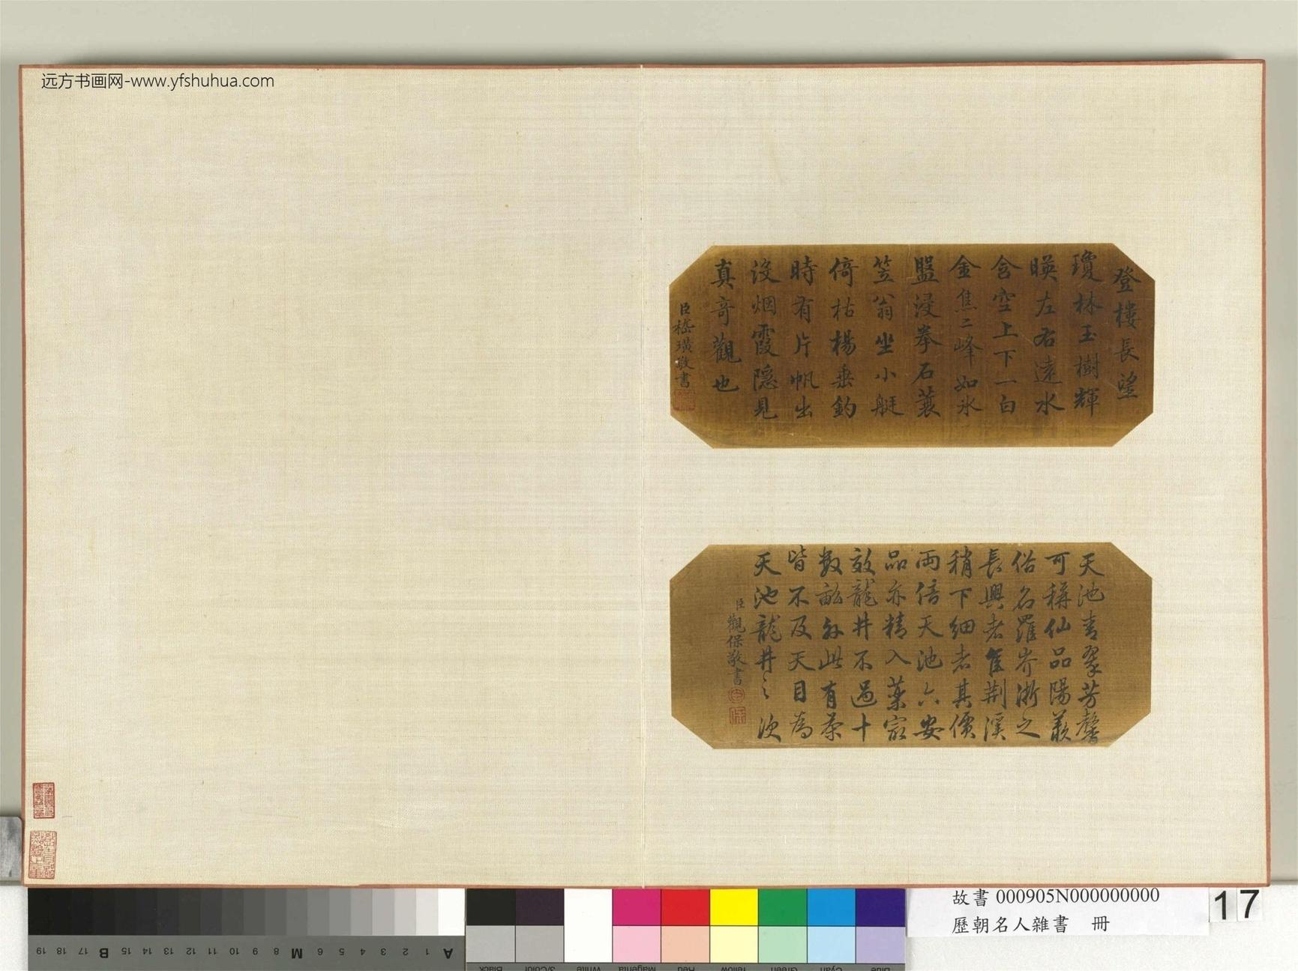 远方书画网-www.yfshuhua.com
登樓長望
瓊林玉樹輝
暎左右遠水
含空上下一白
金焦二峰如冰
盤浸拳石蓑
笠翁坐小艇
倚枯楊垂釣
時有片帆出
沒烟霞隱見
真奇觀也
臣嵇璜敬書
天池青翠芳馨
可稱仙品陽羨
俗名羅岕浙之
長興者佳荆溪
稍下細者其價
兩倍天池六安
品亦精入藥最
效龍井不過十
數畝外此有茶
皆不及天目為
天池龍井之次
臣觀保敬書
故書 000905N000000000
歷朝名人雜書 冊
17
19 18 17 B 16 15 14 13 12 11 10 9 8 M 7 6 5 4 3 2 1 A
Black 3/Color White Magenta Red Yellow Green Cyan Blue